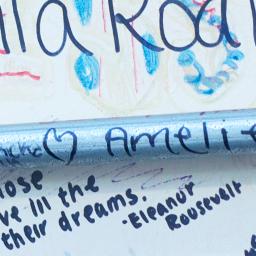 lla Roa
♡ Amelie
lose
ve in the
their dreams.
-Eleanor
Roosevelt